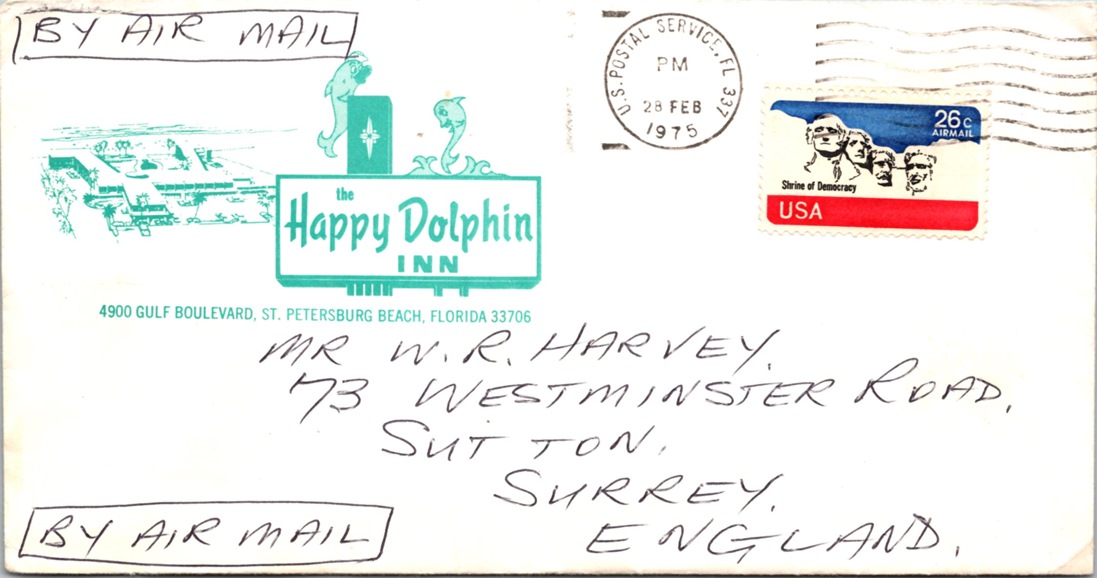 BY AIR MAIL
U.S. POSTAL SERVICE, FL 337
PM
28 FEB
1975
26c
AIRMAIL
Shrine of Democracy
USA
the
Happy Dolphin
INN
4900 GULF BOULEVARD, ST. PETERSBURG BEACH, FLORIDA 33706
MR W. R. HARVEY.
73 WESTMINSTER ROAD.
SUTTON.
SURREY.
ENGLAND.
BY AIR MAIL